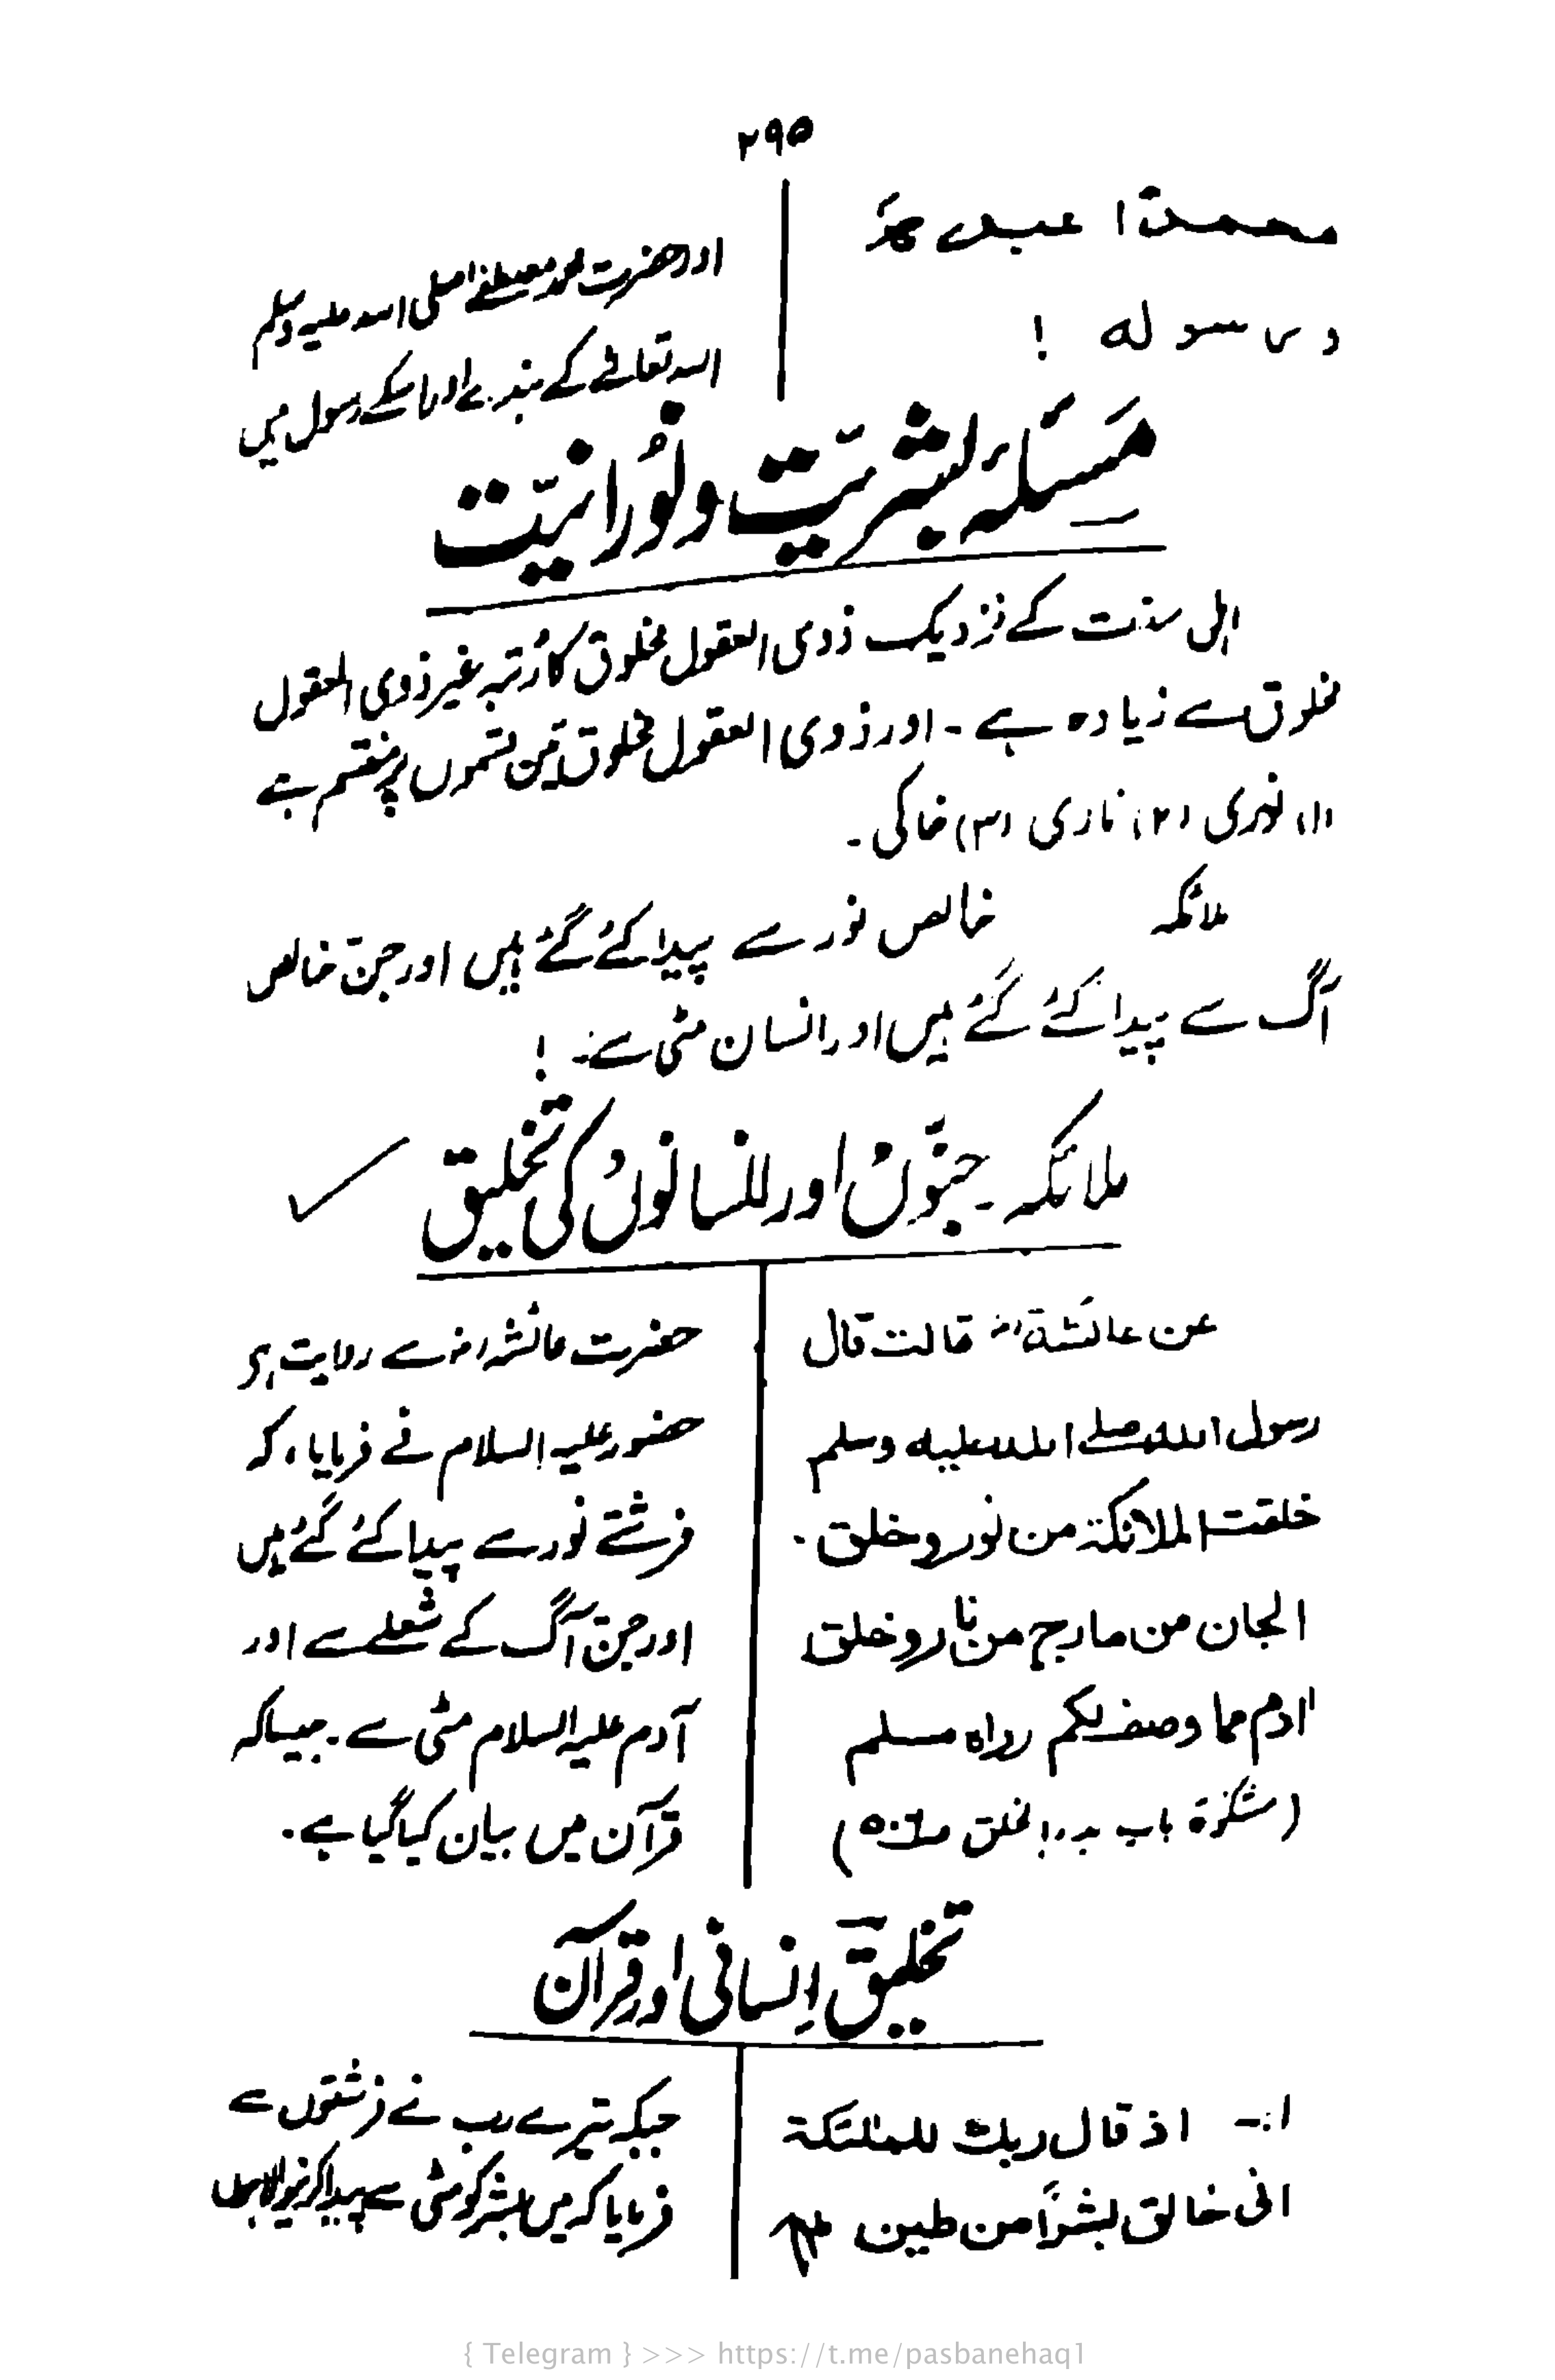 ۲۹۵
محمداً عبدہٗ
ورسولہ !
اور حضرت محمد مصطفےٰ صلی اللہ علیہ وسلم
اللہ تعالےٰ کے بندے اور اسکے رسول ہیں
مسئلہ بشریّت و نُورانیّت
اہل سنت کے نزدیک ذوی العقول مخلوق کا رُتبہ غیر ذوی العقول
مخلوق سے زیادہ ہے ۔ اور ذوی العقول مخلوق تین قسموں پر منقسم ہے
(۱) نوری (۲) ناری (۳) خاکی ۔
ملائکہ خالص نور سے پیدا کئے گئے ہیں اور جنّ خالص
آگ سے پیدا کئے گئے ہیں اور انسان مٹی سے !
ملائکہ ۔ جنّوں اور انسانوں کی تخلیق
عن عائشۃ رض قالت قال
رسول اللہ صلے اللہ علیہ وسلم
خلقت الملائکۃ من نور وخلق
الجان من مارج من نار وخلق
اٰدم مما وصف لکم رواہ مسلم
(مشکوٰۃ باب بدء الخلق ص۵۰۶)
حضرت عائشہ رض سے روایت ہے
حضور علیہ السلام نے فرمایا، کہ
فرشتے نور سے پیدا کئے گئے ہیں
اور جنّ آگ کے شعلے سے اور
آدم علیہ السلام مٹی سے ۔ جیسا کہ
قرآن میں بیان کیا گیا ہے ۔
تخلیقِ انسانی اور قرآن
۱:۔ اذ قال ربک للملٰئکۃ
انی خالق بشراً من طین
جبکہ تیرے رب نے فرشتوں سے
فرمایا کہ میں بشر کو مٹی سے پیدا کرنیوالا ہوں
{ Telegram } >>> https://t.me/pasbanehaq1